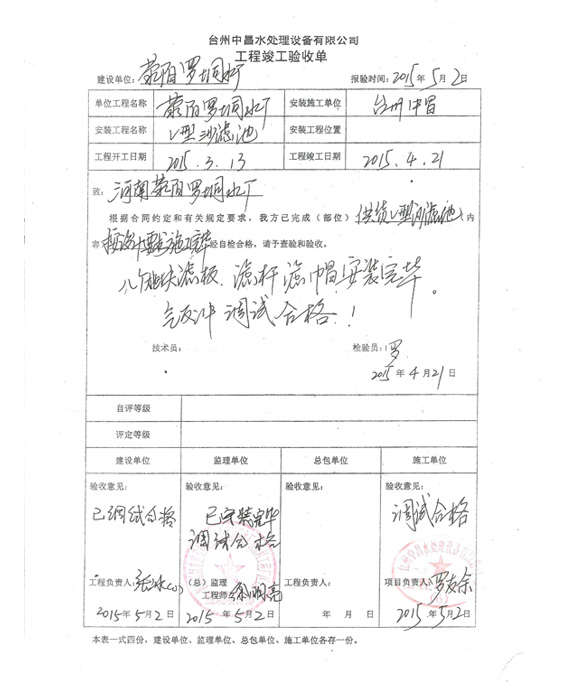 台州中昌水处理设备有限公司
工程竣工验收单
建设单位：荥阳罗垌水厂 报验时间：2015年5月2日
单位工程名称 荥阳罗垌水厂 安装施工单位 台州中昌
安装工程名称 V型砂滤池 安装工程位置
工程开工日期 2015.3.13 工程竣工日期 2015.4.21
致：河南荥阳罗垌水厂
根据合同约定和有关规定要求，我方已完成（部位）供货V型砂滤池内
容 按设计要求施工完毕 经自检合格，请予查验和验收。
八个 滤板、滤杆滤帽安装完毕。
气反冲调试合格！
技术员： 检验员：罗
2015年4月21日
自评等级
评定等级
建设单位 监理单位 总包单位 施工单位
验收意见： 验收意见： 验收意见： 验收意见：
已调试合格 已安装完毕 调试合格
调试合格
工程负责人： （总）监理 工程负责人： 项目负责人：罗友余
工程师
2015年5月2日 2015年5月2日 年 月 日 2015.5月2日
本表一式四份，建设单位、监理单位、总包单位、施工单位各存一份。